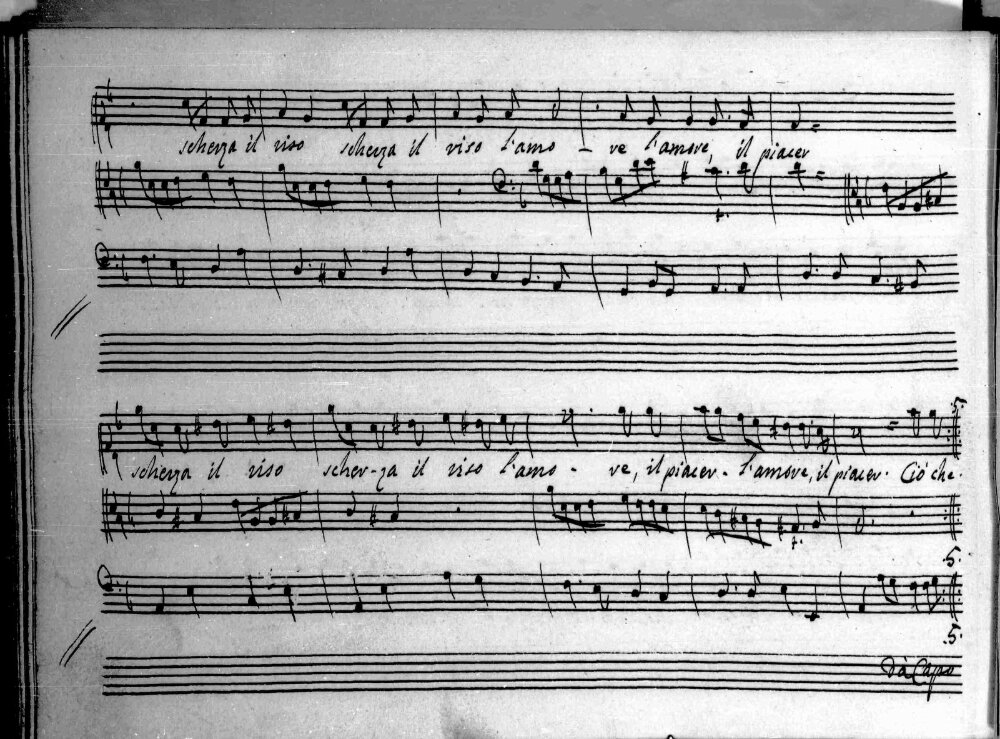 scherza il viso scherza il viso l'amo - re l'amore, il piacer
scherza il viso scher-za il viso l'amo - re, il piacer - l'amore, il piacer. Ciò che.
.5.
.5.
.5.
Dà Capo